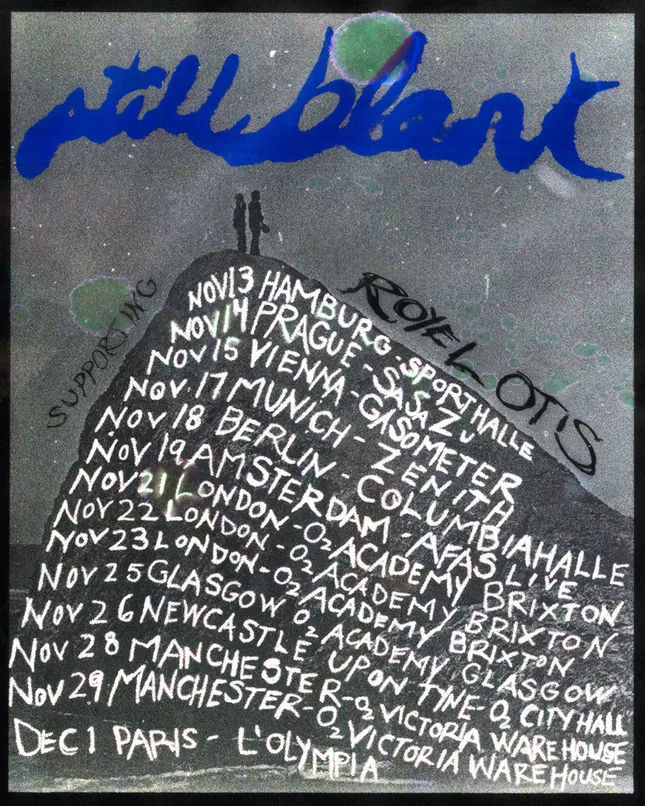 still blank
SUPPORTING
ROYEL OTIS
NOV13 HAMBURG-SPORTHALLE
NOV14 PRAGUE-SASAZU
NOV15 VIENNA-GASOMETER
NOV.17 MUNICH-ZENITH
NOV 18 BERLIN-COLUMBIAHALLE
NOV 19 AMSTERDAM-AFAS LIVE
NOV21 LONDON-O2 ACADEMY BRIXTON
NOV22 LONDON-O2 ACADEMY BRIXTON
NOV23 LONDON-O2 ACADEMY BRIXTON
NOV25 GLASGOW O2 ACADEMY GLASGOW
NOV26 NEWCASTLE UPON TYNE-O2 CITY HALL
NOV 28 MANCHESTER-O2 VICTORIA WAREHOUSE
NOV 29 MANCHESTER-O2 VICTORIA WAREHOUSE
DEC1 PARIS - L'OLYMPIA